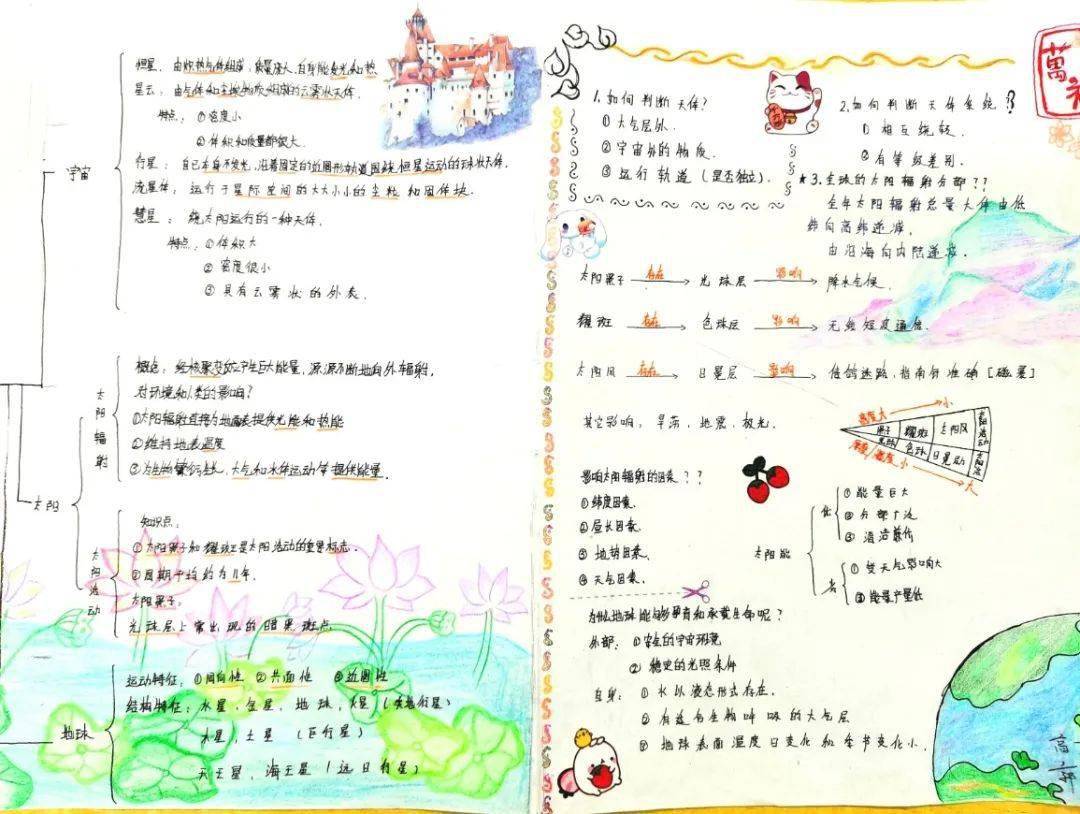 宇宙
恒星：由炽热气体组成，质量庞大，自身能发光和热
星云：由气体和尘埃物质组成的云雾状天体．
特点：①密度小
②体积和质量都很大．
行星：自己本身不发光，沿着固定的近圆形轨道围绕恒星运动的球状天体．
流星体：运行于星际空间的大大小小的尘粒和固体块．
彗星：绕太阳运行的一种天体．
特点：①体积大
②密度很小
③具有云雾状的外表．
太阳
太阳辐射
概念：经核聚变产生巨大能量，源源不断地向外辐射．
对环境和人类的影响？
①太阳辐射直接为地面表提供光能和热能
②维持地表温度
③为生物繁衍生长，大气和水体运动等提供能量．
太阳活动
知识点：
①太阳黑子和耀斑是太阳活动的重要标志．
②周期平均约为11年．
太阳黑子：
光球层上常出现的暗黑斑点
地球
运动特征：①同向性 ②共面性 ③近圆性
结构特征：水星，金星，地球，火星（类地行星）
木星，土星（巨行星）
天王星，海王星（远日行星）
1.如何判断天体？
①大气层外．
②宇宙间的物质．
③运行轨道（是否独立）．
2.如何判断天体系统？
①相互绕转．
②有等级差别．
★3.全球的太阳辐射分部？？
全年太阳辐射总量大体由低
纬向高纬递减，
由沿海向内陆递减．
太阳黑子 存在 光球层 影响 降水气候．
耀斑 存在 色球层 影响 无线短波通信．
太阳风 存在 日冕层 影响 信鸽迷路，指南针准确［磁暴］
其它影响：旱涝，地震，极光．
密度大 小
黑子 耀斑 太阳风 太阳活动
光球 色球 日冕 太阳
小 大
影响太阳辐射的因素？？
①纬度因素．
②昼长因素．
③地势因素．
④天气因素．
太阳能
优
①能量巨大
②分部广泛
③清洁
者
①受天气影响大
②能量产量低
为什么地球能够孕育和承载生命呢？
外部：①安全的宇宙环境
②稳定的光照条件
自身：①水以液态形式存在．
②有适合生物呼吸的大气层
③地球表面温度日变化和季节变化小．
萬
高一